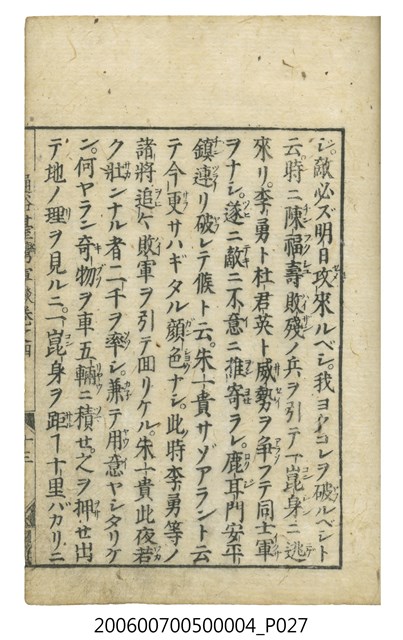 ン。敵必ズ明日攻來ルベシ。我ヨクコレヲ破ルベシト
云。時ニ陳福壽敗殘ノ兵ヲ引テ下崑身ニ逃
來リ。李勇ト杜君英ト威勢ヲ爭フテ同士軍
ヲナシ。遂ニ敵ニ不意ニ推寄ラレ。鹿耳門安平
鎮連リ破レテ候ト云。朱一貴サゾアラント云
テ今更サハギタル顔色ナシ。此時李勇等ノ
諸將追々敗軍ヲ引テ回リケル。朱一貴此夜若
ク壯ンナル者二千ヲ率シ。兼テ用意ヤシタリケ
ン。何ヤラン奇物ヲ車五輛ニ積セ。之ヲ押セ出
テ地ノ理ヲ見ルニ。下崑身ヲ距ルヿ十里バカリニ
通俗臺灣軍談卷之四
十三
200600700500004_P027